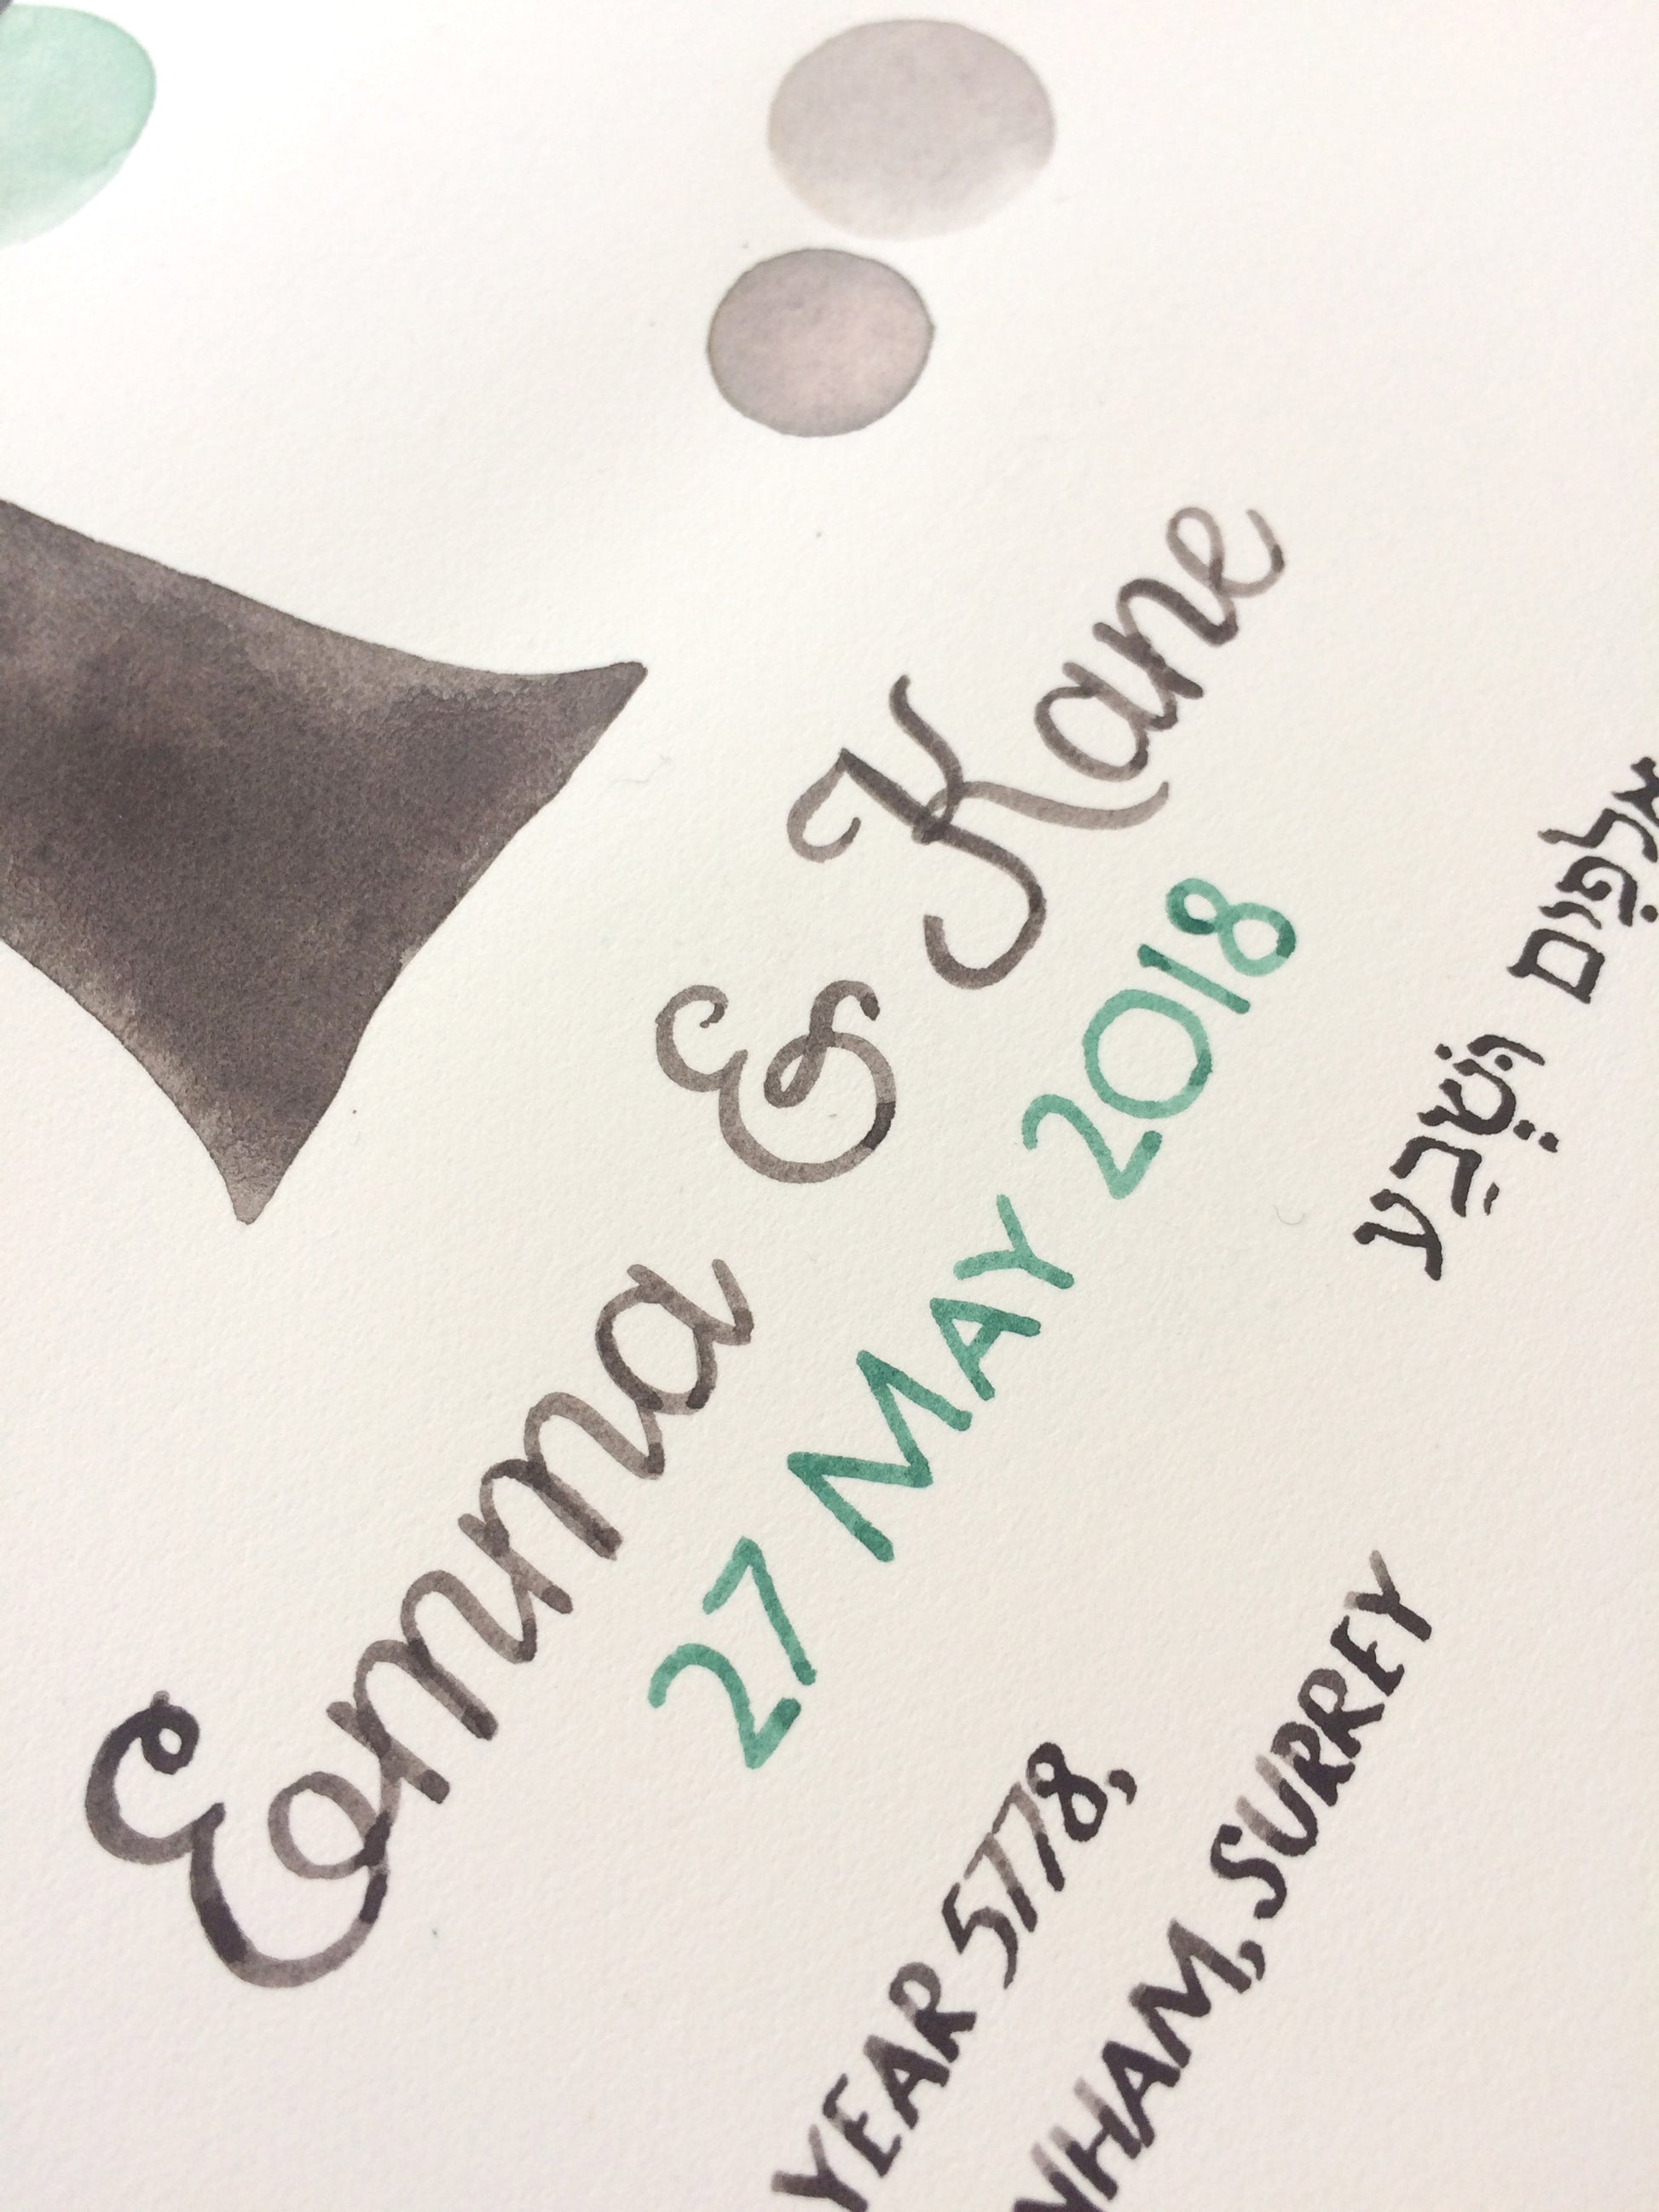 Emma & Kane
27 MAY 2018
אֲלָפִים וּשְׁבַע
YEAR 5778,
NHAM, SURREY